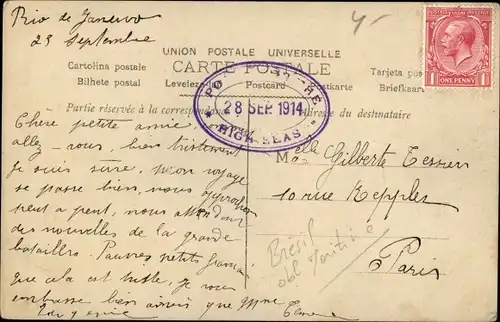 Rio de Janeiro
23 Septembre
4-
UNION POSTALE UNIVERSELLE
CARTE POSTALE
Cartolina postale
Bilhete postal
Postcard
Tarjeta po
Briefkaar
Partie réservée à la correspondance
Adresse du destinataire
28 SEP. 1914
HIGH SEAS
ONE PENNY
Chere petite amie,
allez-vous, bien tristement
je suis sûre, mon voyage
se passe bien, nous approchons
peut a peut, nous attendons
des nouvelles de la grande
bataille. Pauvres petits français
que cela est triste, je vous
embrasse bien ainsi que Mme
Melle Gilberte Tessier
10 rue Keppler
Paris
Bresil
obl maritime